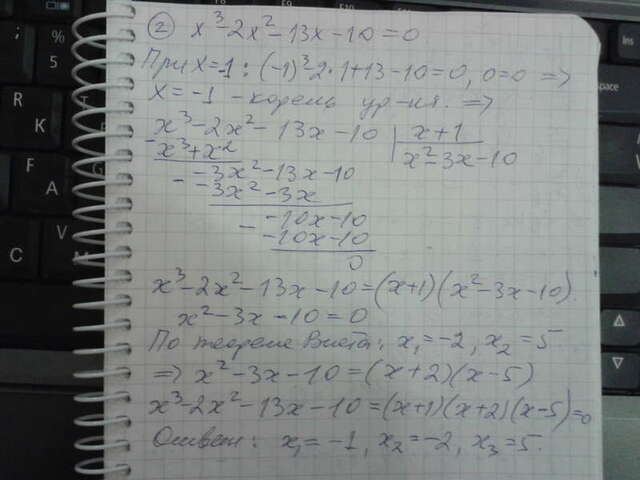 ② x³-2x²-13x-10=0
При x=-1: (-1)³-2·1+13-10=0, 0=0 ⇒
x=-1 - корень ур-ния. ⇒
x³-2x²-13x-10 | x+1
- x³+x² x²-3x-10
-3x²-13x-10
- -3x²-3x
-10x-10
- -10x-10
0
x³-2x²-13x-10=(x+1)(x²-3x-10).
x²-3x-10=0
По теореме Виета: x₁=-2, x₂=5
⇒ x²-3x-10=(x+2)(x-5)
x³-2x²-13x-10=(x+1)(x+2)(x-5)=0
Ответ: x₁=-1, x₂=-2, x₃=5.
;
%
5
R
K
F
A
C
V
M
Ins